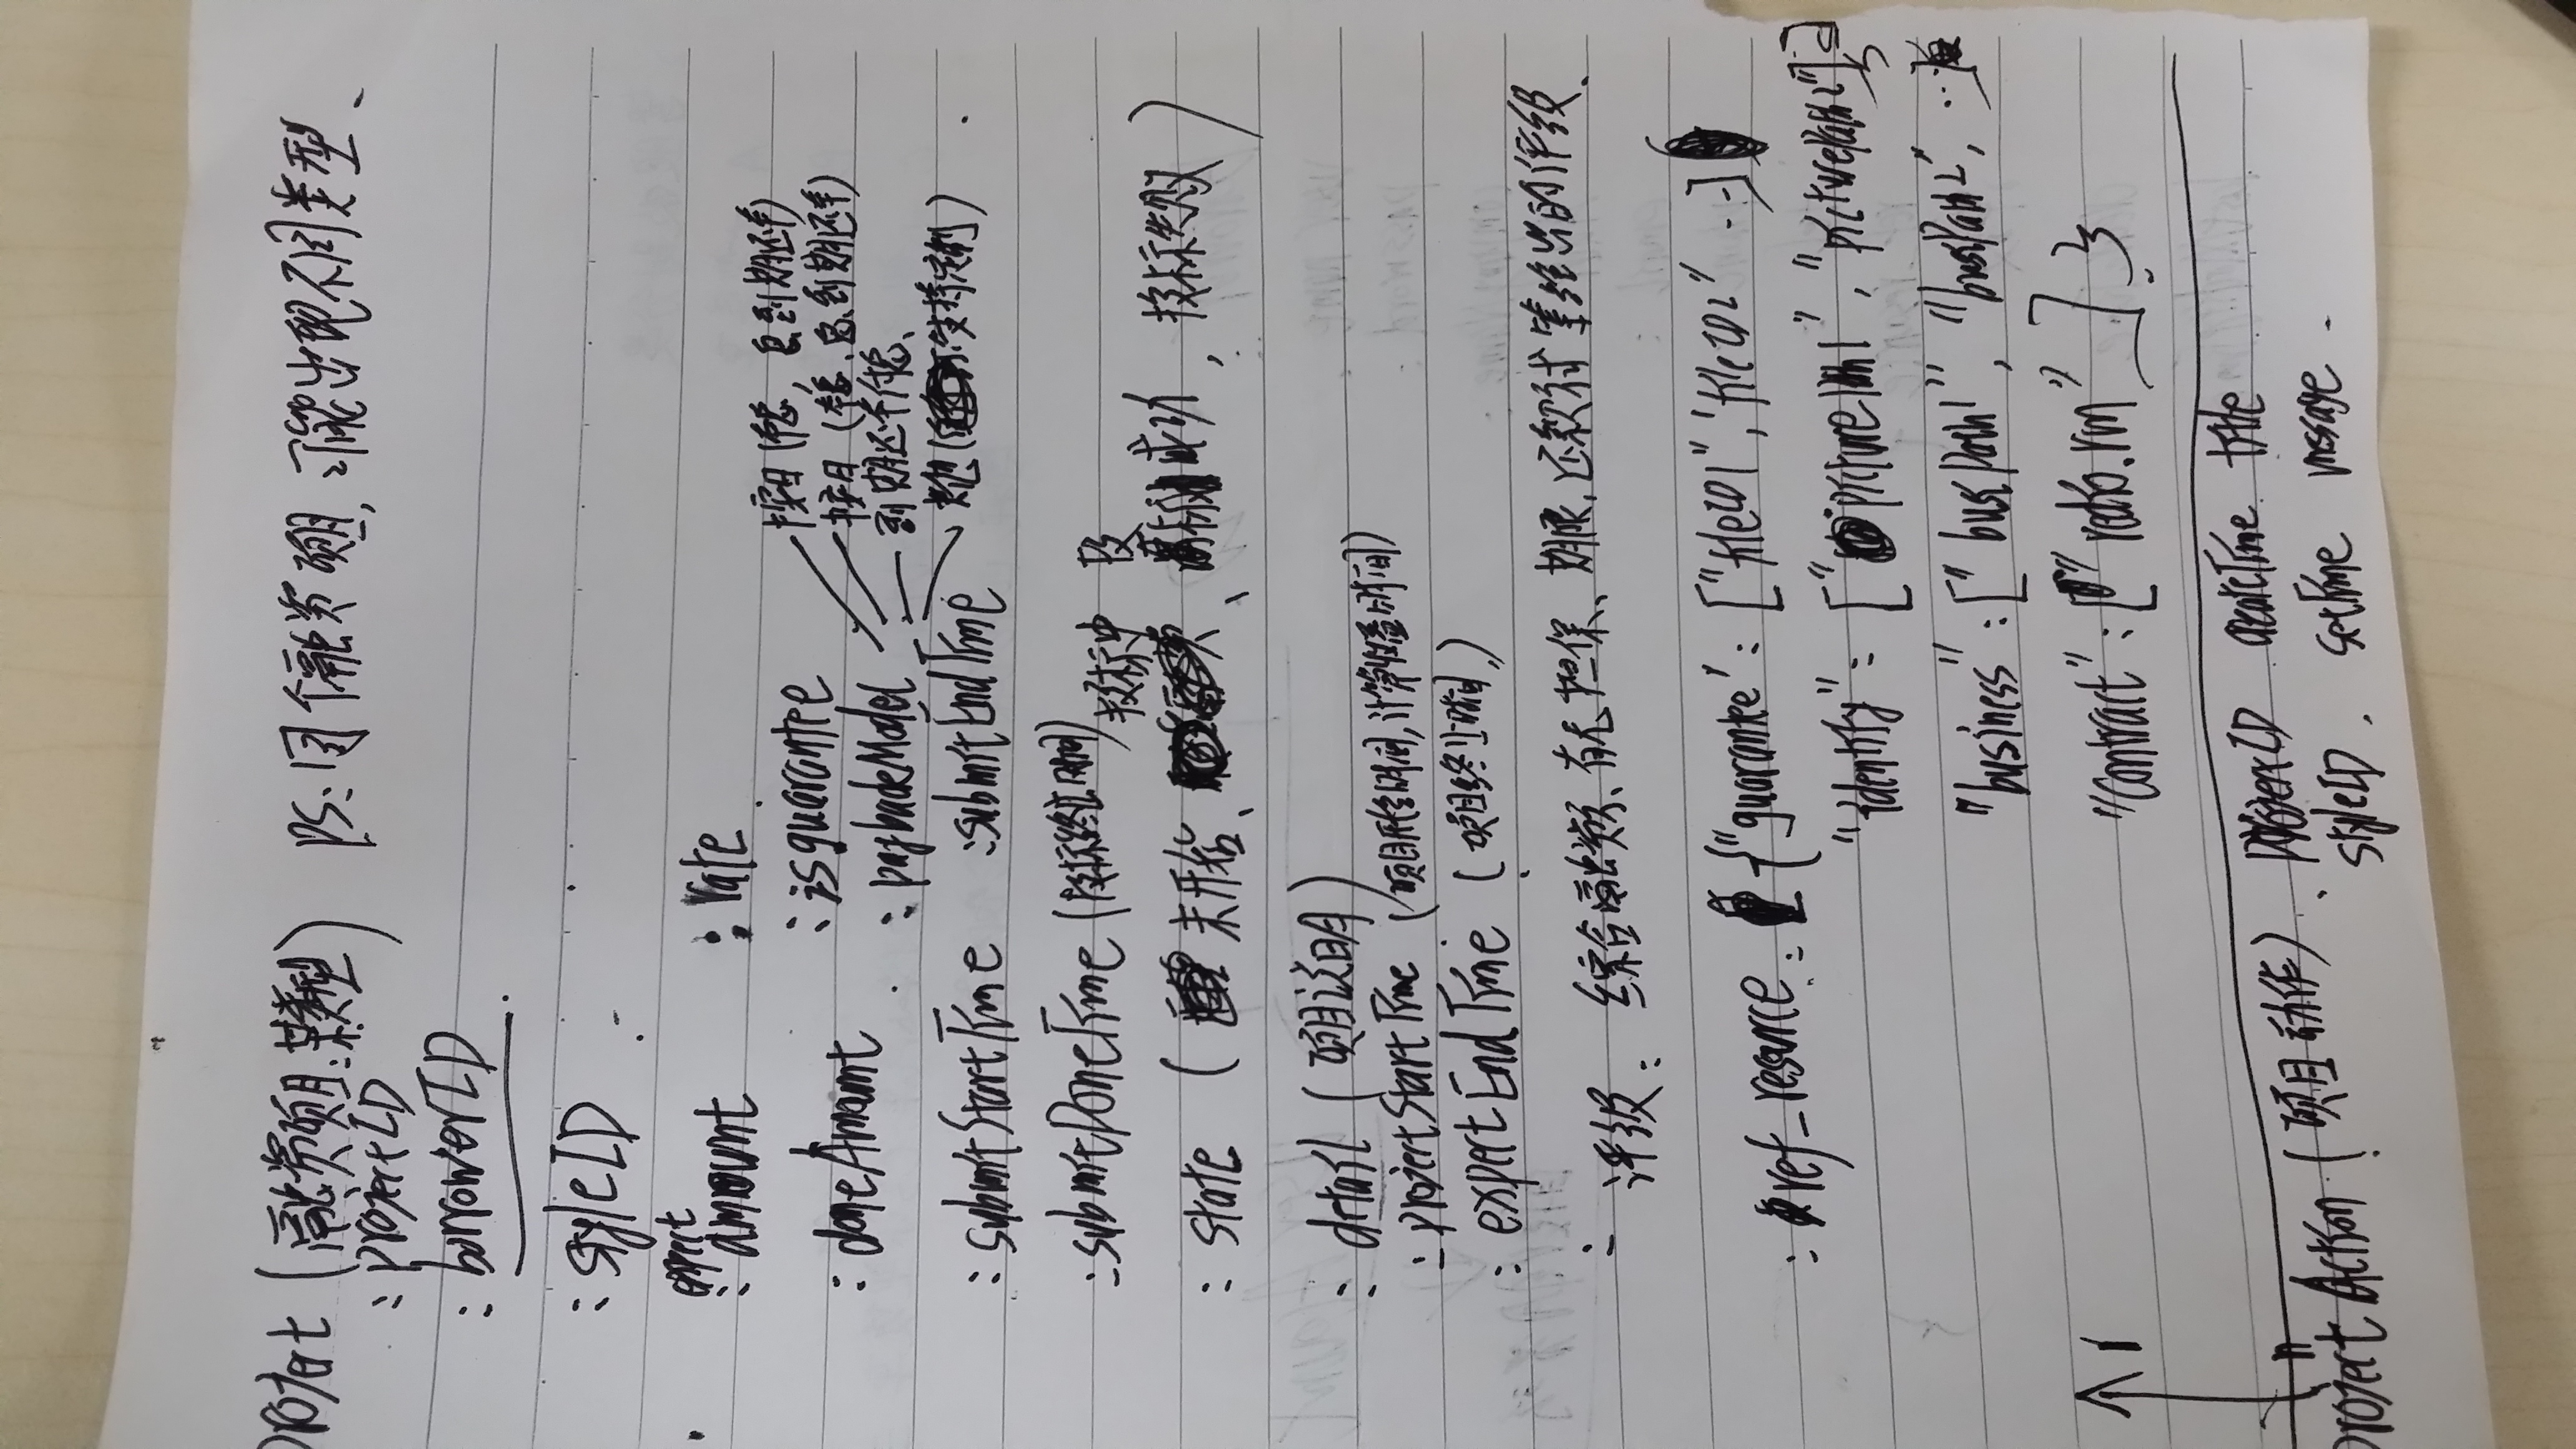 project (融资项目:某类型) PS:同个融资项目,可能出现不同类型、
: projectID
: borrowerID
: styleID
expect
: amount : rate
: isguarantee
: doneAmount
: paybackModel
到期还本付息、
: submitStartTime : submitEndTime
: submitDoneTime (投标终止时间)
投标中 投
: state ( 未开始、 、 成功 , 投标失败 )
: detail ( 项目说明 )
: projectStartTime (项目开始时间,计算收益时间)
: expertEndTime ( 项目终止时间,)
: 评级: 综合融资额、有无担保、期限,还款 等给出的评级、
: ref_resource : {"guarantee" : ["fileID1", "fileID2" ...]
"identity" : ["picturePath1", "picturePath2"]
"business" : ["busiPath1", "busiPath2", ...]
"Contract" : [" "] }
1
n
project Action (项目动作)、 projectID createTime title
styleID . setTime message .